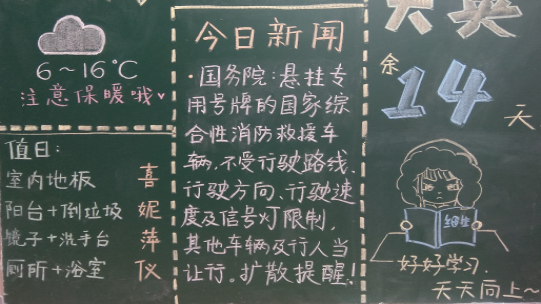 6～16℃
注意保暖哦
值日:
室内地板 喜
阳台+倒垃圾 妮
镜子+洗手台 萍
厕所+浴室 仪
今日新闻
·国务院:悬挂专
用号牌的国家综
合性消防救援车
辆,不受行驶路线、
行驶方向、行驶速
度及信号灯限制,
其他车辆及行人当
让行。扩散提醒!
余
14
天
好好学习,
天天向上~